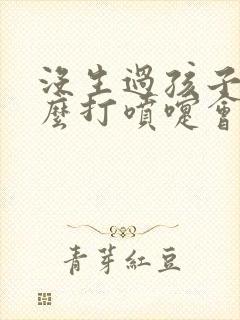 沒生過孩子
麼打噴嚏會
青芽紅豆